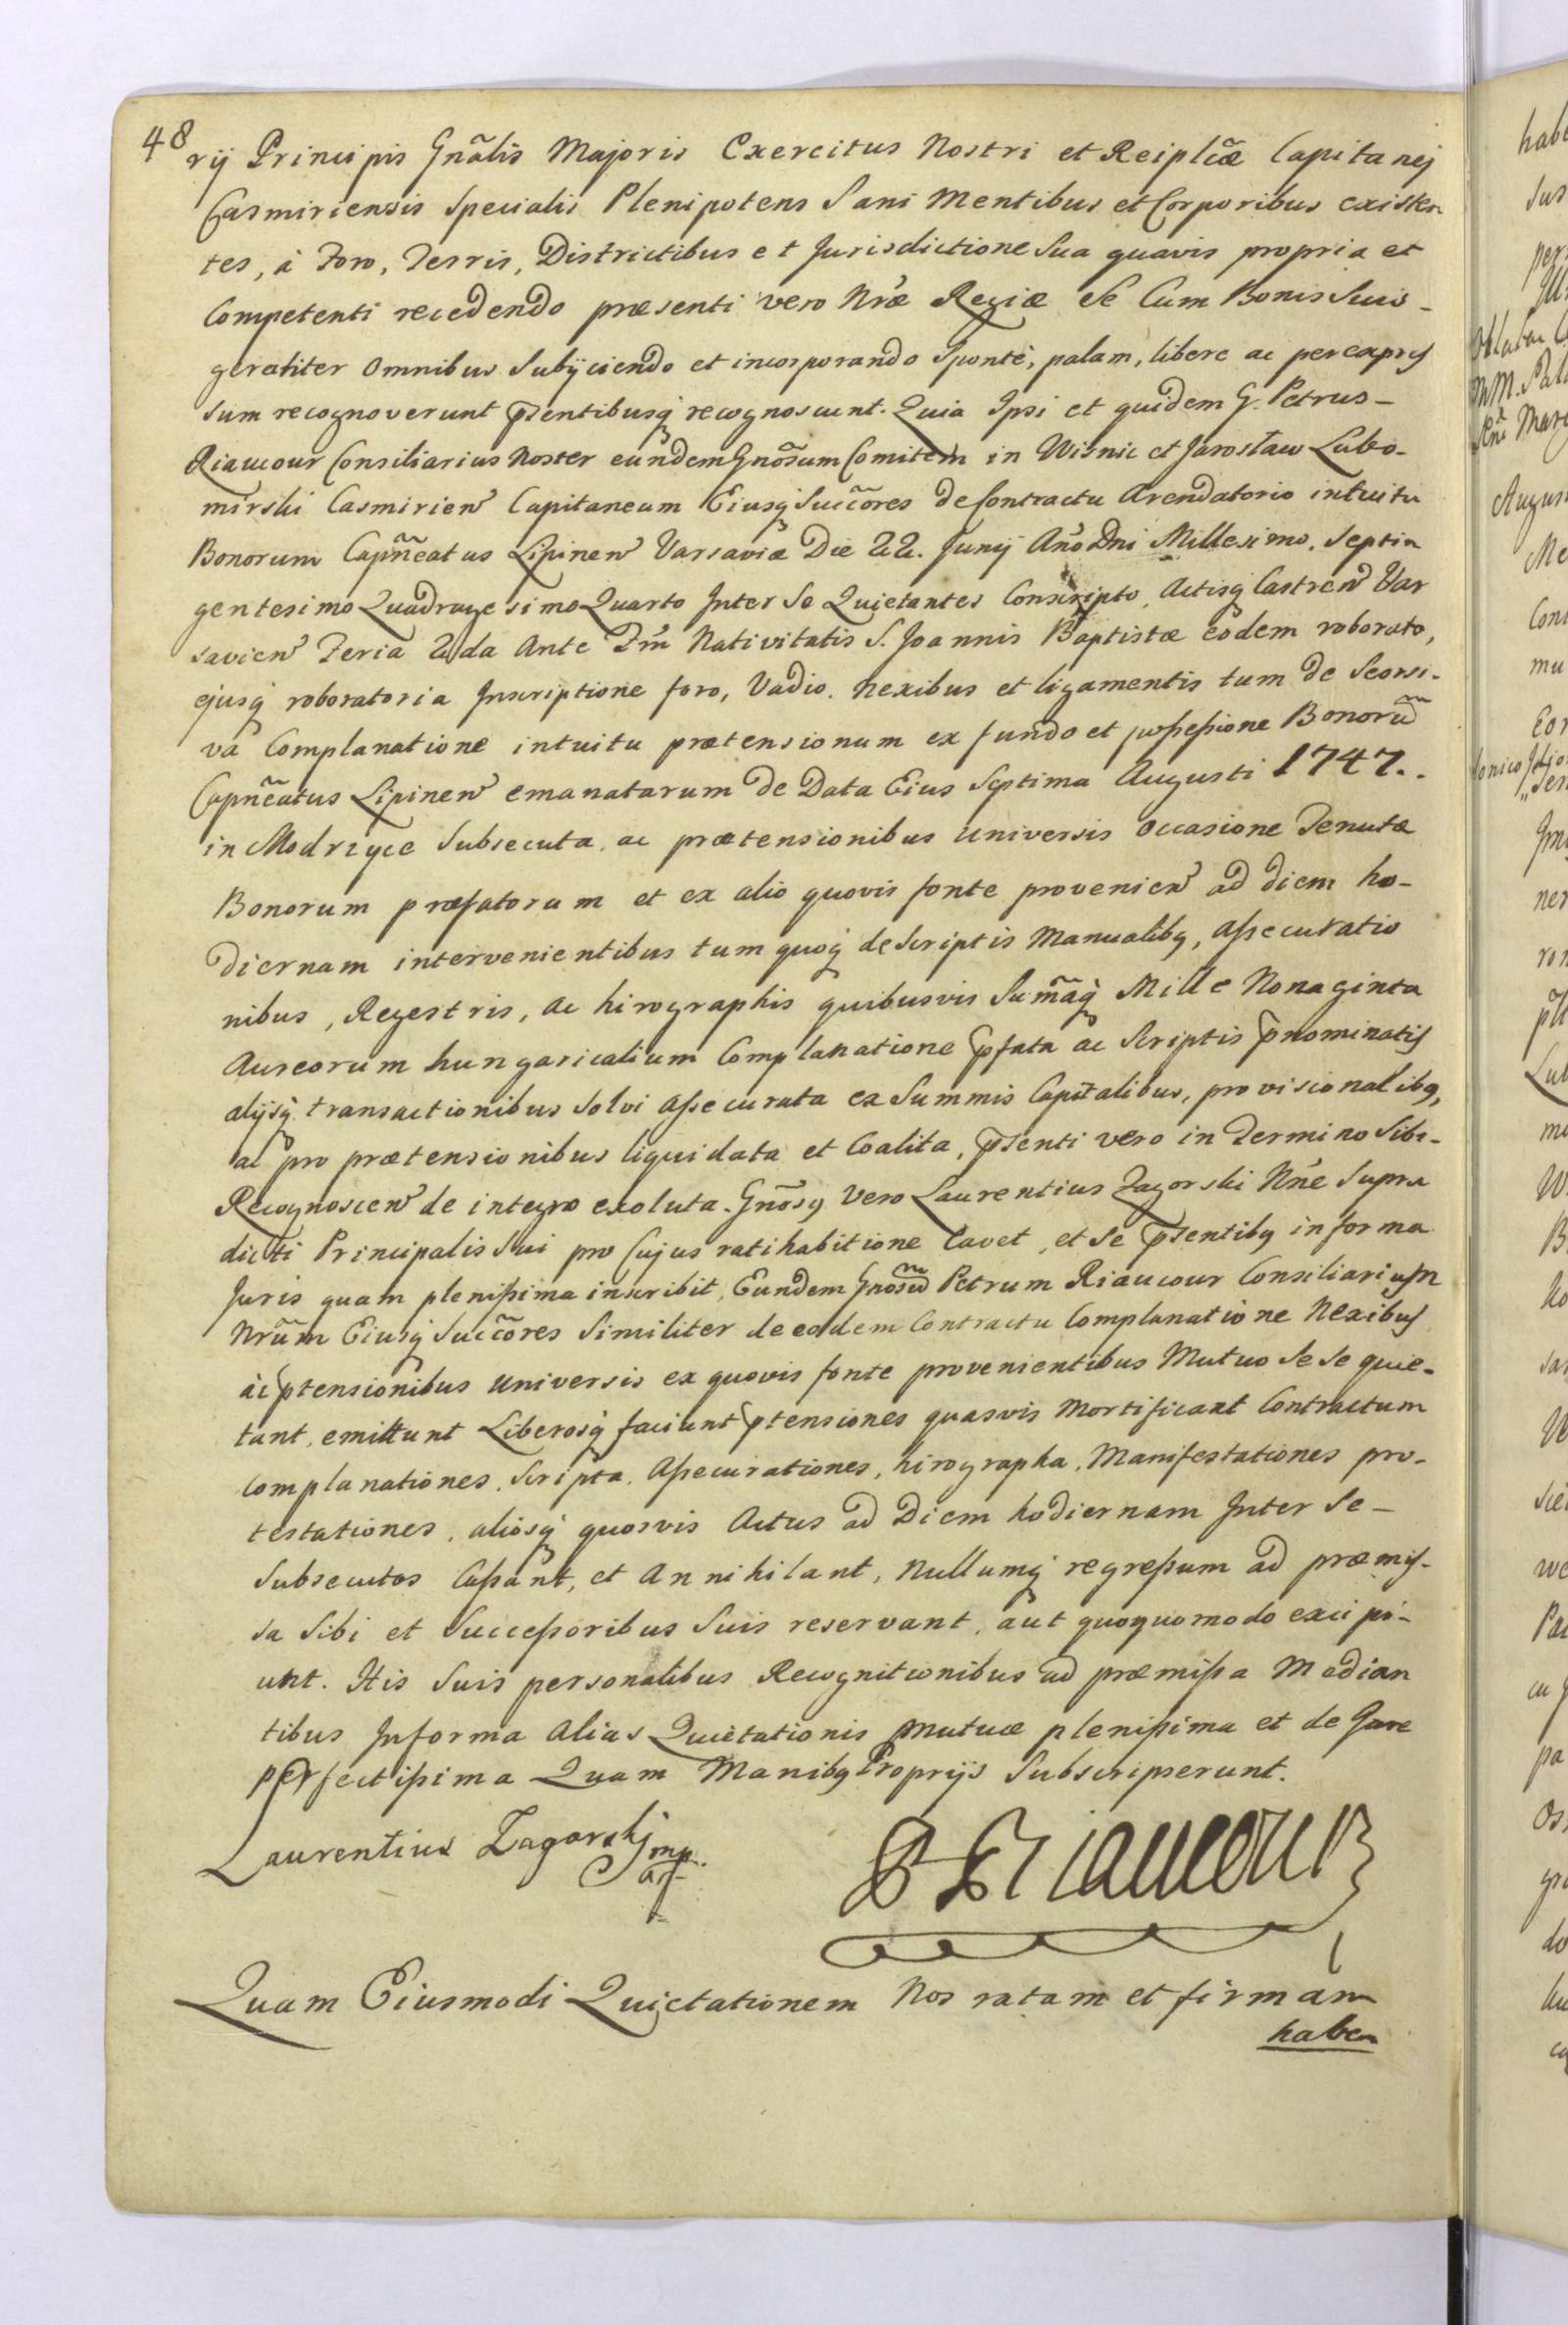 48
rij Principis Gnãlis Majoris Exercitus Nostri et Reiplicæ Capitanej
Casmiriensis Specialis Plenipotens Sani Mentibus et Corporibus existen
tes, à Foro, Terris, Districtibus et Jurisdictione Sua quavis propria et
Competenti recedendo præsenti vero Nræ Regiæ Se Cum Bonis Suis
gñraliter Omnibus Subijciendo et incorporando Sponte, palam, libere ac per expres
sum recognoverunt p̃sentibusq̃ recognoscunt. Quia Ipsi et quidem G. Petrus
Riaucour Consiliarius Noster eundem Gnõsum Comitem in Wisnic et Jarosław Lubo-
mirski Casmirien̄ Capitaneum Eiusq̃ Succ̃ores de Contractu Arendatorio intuitu
Bonorum Capñeatus Lipinen̄ Varsaviæ Die 22. Junij Año Dni Millesimo, Septin
gentesimo Quadragesimo Quarto Inter Se Quietantes Conscripto, Actisq̃ Castren̄ Var
savien̄ Feria 2da Ante Fm̃ Nativitatis S. Joannis Baptistæ eodem roborato,
ejusq̃ roboratoria Inscriptione foro, Vadio, nexibus et ligamentis tum de Seorsi-
va Complanatione intuitu prætensionum ex fundo et possessione Bonorũ
Capñeatus Lipinen̄ emanatarum de Data Eius Septima Augusti 1747.
in Modrzyce Subsecuta, ac prætensionibus universis occasione Tenutæ
Bonorum præfatorum et ex alio quovis fonte provenien̄ ad diem ho-
diernam intervenientibus tum quoq̃ descriptis Manualibq, assecuratio
nibus, Regestris, ac hirographis quibusvis Sum̃aq̃ Mille Nonaginta
Aureorum hungaricalium Complanatione p̃fata ac Scriptis p̃nominatis
alijsq̃ transactionibus Solvi assecurata ex Summis Capitalibus, provisionalibq,
ac pro prætensionibus liquidata et Coalita, p̃senti vero in Termino Sibi
Recognoscen̄ de integro exoluta. Gnõsq Vero Laurentius Zagorski Nñe Supra
dicti Principalis Sui pro Cujus ratihabitione Cavet, et Se p̃sentibq in forma
Juris quam plenissima inscribit, Eundem Gnõsũ Petrum Riaucour Consiliarium
Nrũm Eiusq̃ Succ̃ores Similiter de eodem Contractu Complanatione Nexibus
ac p̃tensionibus universis ex quovis fonte provenientibus Mutuo Se Se quie-
tant, emittunt Liberosq̃ faciunt p̃tensiones quasvis Mortificant Contractum
Complanationes, Scripta, Assecurationes, hirographa, Manifestationes pro-
testationes, aliosq̃ quosvis Actus ad Diem hodiernam Inter Se
Subsecutos Cassant, et Annihilant, Nullumq̃ regressum ad præmis-
sa Sibi et Successoribus Suis reservant, aut quoquomodo excipi-
unt. His Suis personalibus Recognitionibus ad præmissa Median
tibus In forma alias Quietationis Mutuæ plenissima et de Jure
perfectissima Quam Manibq Proprijs Subscripserunt.
Laurentius Zagorski mp.
P Riaucour
Quam Eiusmodi Quietationem Nos ratam et firmam
haben